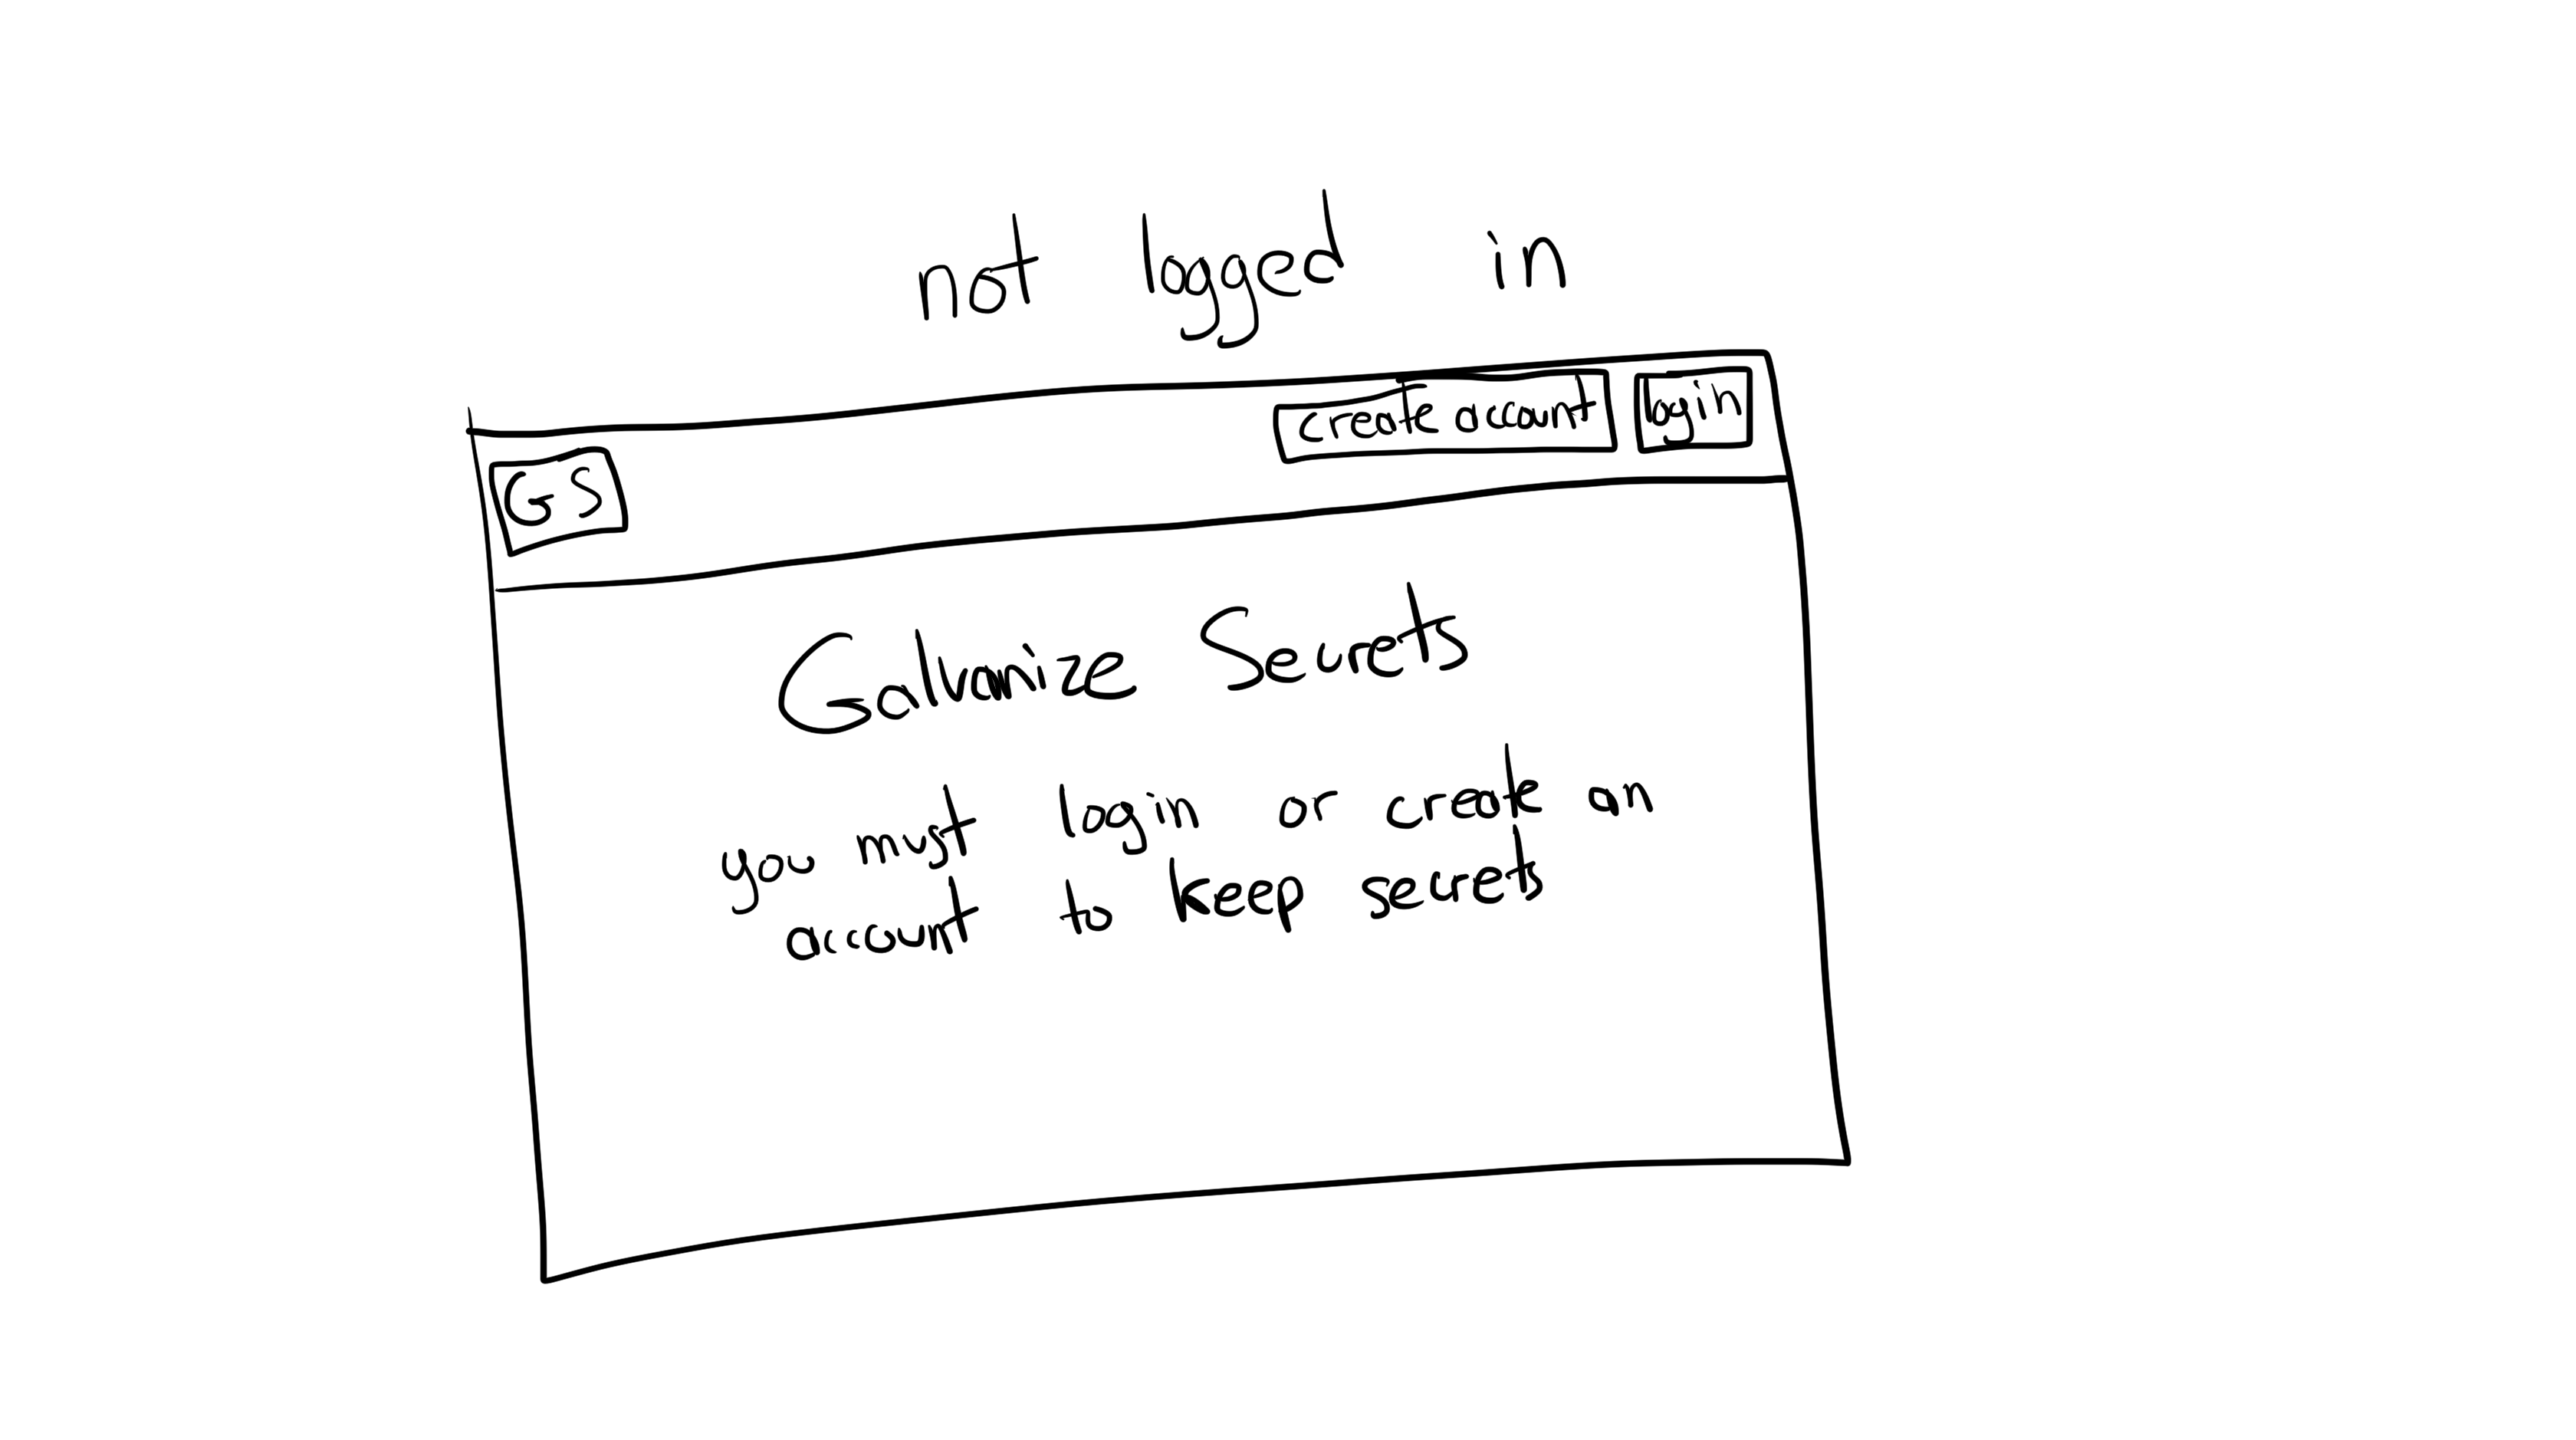 not logged in
create account login
GS
Galvanize Secrets
you must login or create an
account to keep secrets